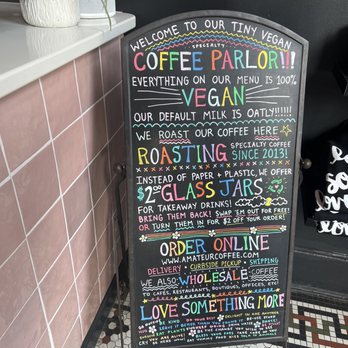 WELCOME TO OUR TINY VEGAN
SPECIALTY
COFFEE PARLOR!!!
EVERYTHING ON OUR MENU IS 100%
VEGAN
OUR DEFAULT MILK IS OATLY!!!!!
WE ROAST OUR COFFEE HERE
ROASTING SPECIALTY COFFEE SINCE 2013!
INSTEAD OF PAPER + PLASTIC, WE OFFER
$2.00 GLASS JARS
FOR TAKEAWAY DRINKS!
BRING THEM BACK! SWAP 'EM OUT FOR FREE!
OR TURN THEM IN FOR $2 OFF YOUR ORDER!
ORDER ONLINE
WWW.AMATEURCOFFEE.COM
DELIVERY • CURBSIDE PICKUP • SHIPPING
WE ALSO WHOLESALE COFFEE
TO CAFES, RESTAURANTS, BOUTIQUES, OFFICES, ETC!
LOVE SOMETHING MORE
BE KIND